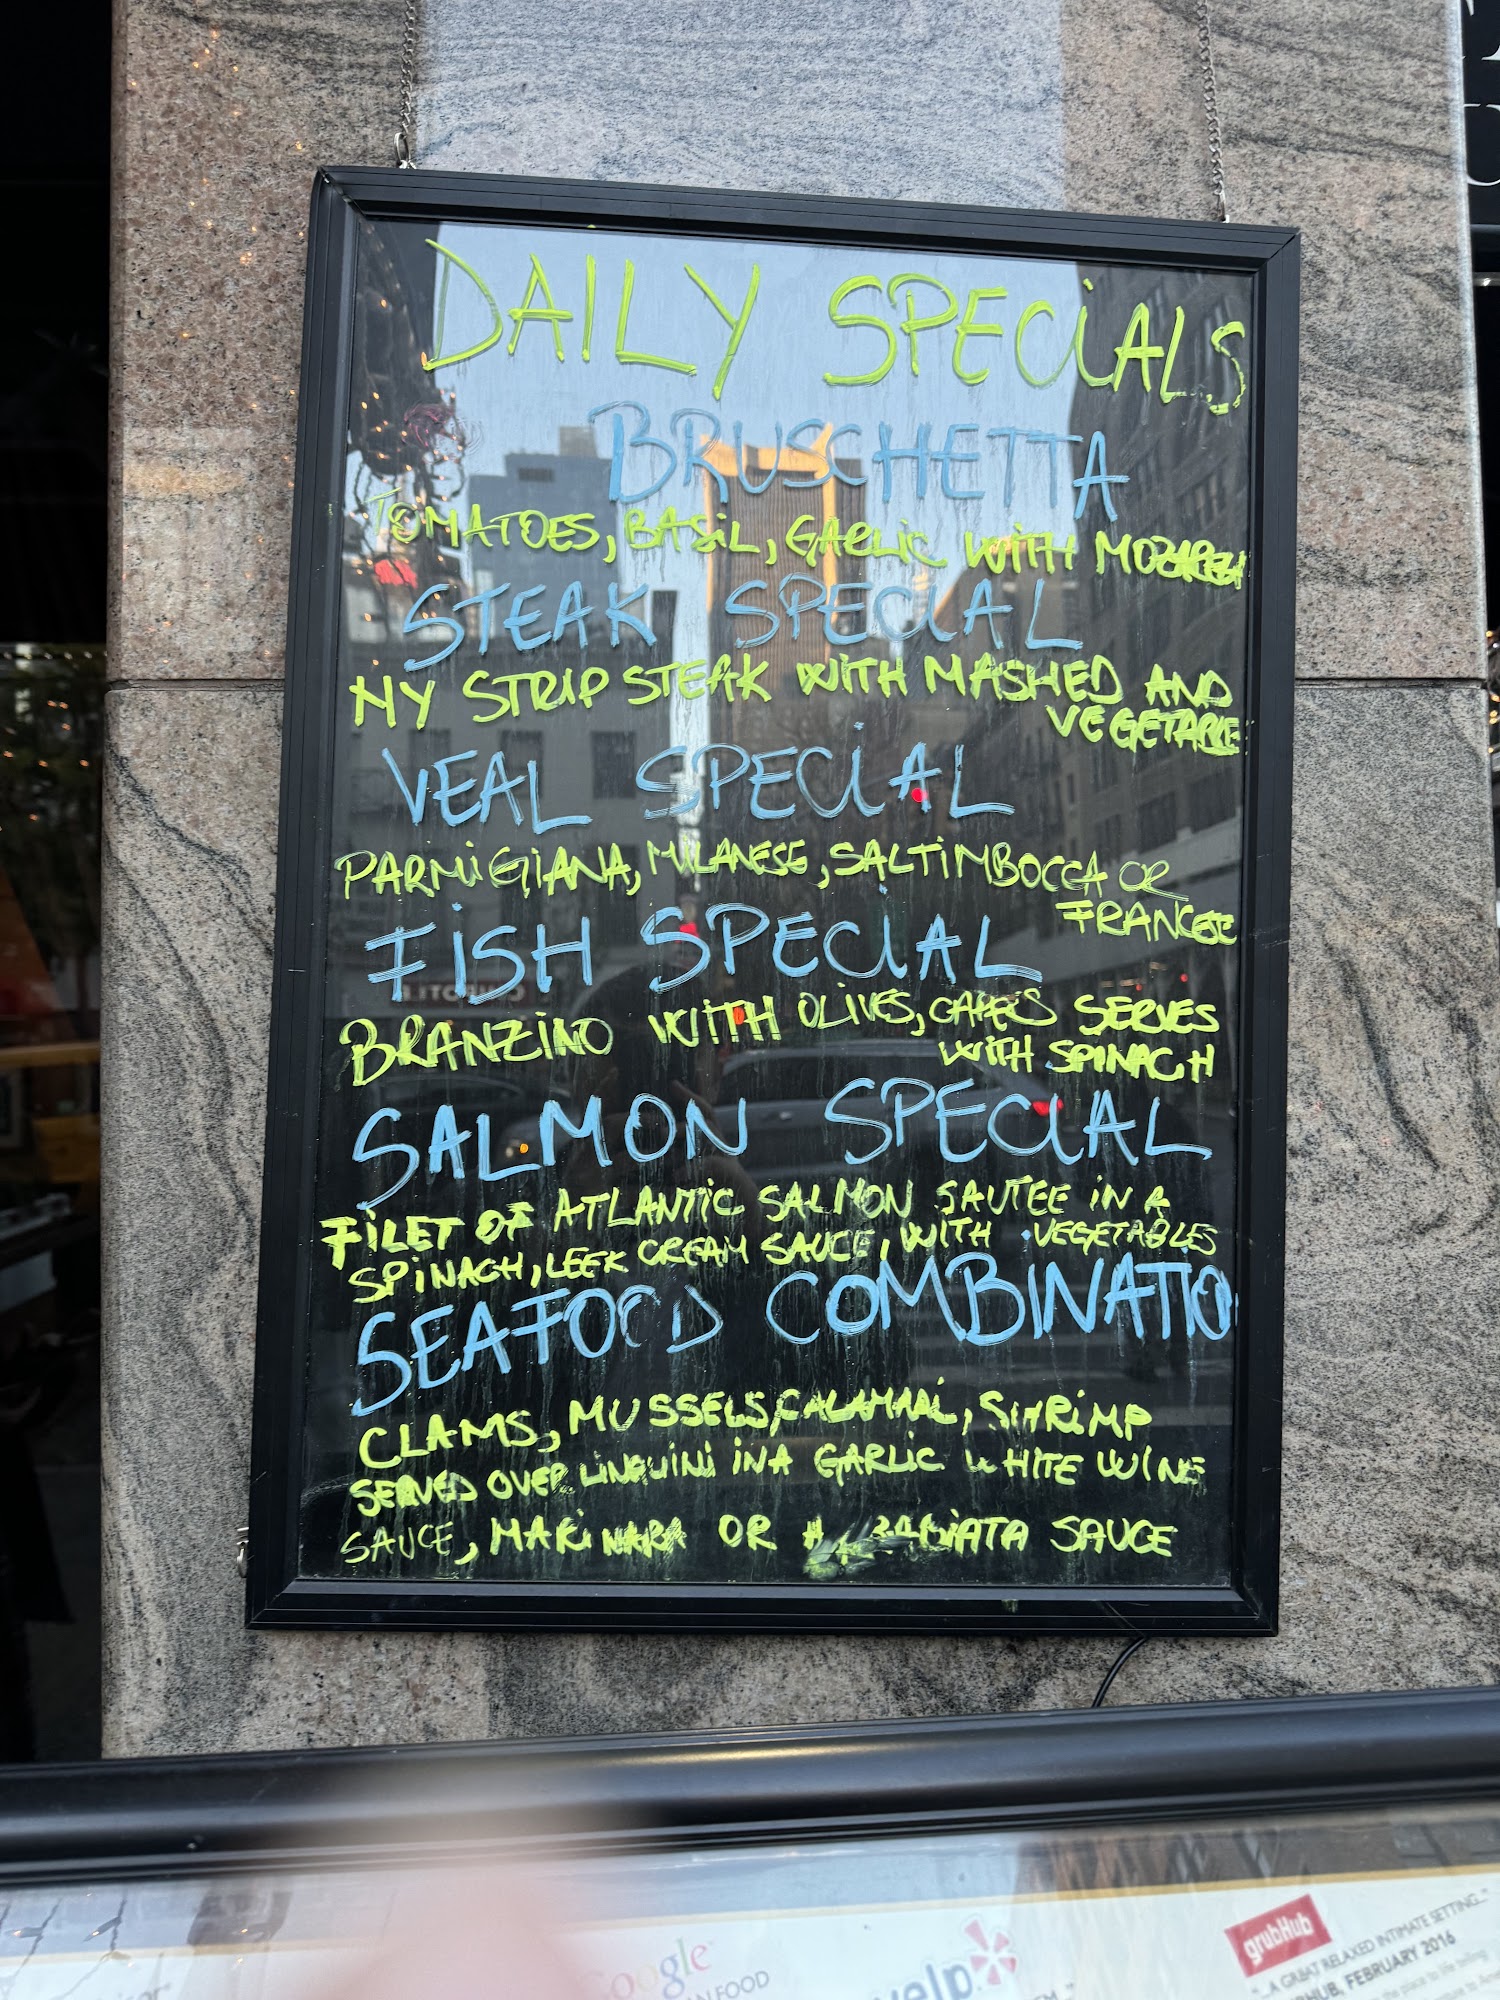 DAILY SPECIALS
BRUSCHETTA
TOMATOES, BASIL, GARLIC WITH
STEAK SPECIAL
NY STRIP STEAK WITH MASHED AND
VEGETABLE
VEAL SPECIAL
PARMIGIANA, MILANESE, SALTIMBOCCA OR
FRANCESE
FISH SPECIAL
BRANZINO WITH OLIVES, CAPERS SERVES
WITH SPINACH
SALMON SPECIAL
FILET OF ATLANTIC SALMON SAUTEE IN A
SPINACH, LEEK CREAM SAUCE, WITH VEGETABLES
SEAFOOD COMBINATIO
CLAMS, MUSSELS, CALAMARI, SHRIMP
SERVED OVER LINGUINI IN A GARLIC WHITE WINE
SAUCE, MARINARA OR SAUCE
Google
yelp
grubHub
"...A GREAT RELAXED INTIMATE SETTING..."
FEBRUARY 2016
FOOD